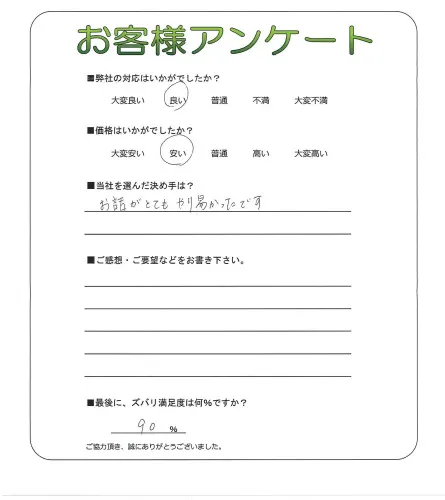 お客様アンケート
■弊社の対応はいかがでしたか？
大変良い 良い 普通 不満 大変不満
■価格はいかがでしたか？
大変安い 安い 普通 高い 大変高い
■当社を選んだ決め手は？
お話がとてもやり易かったです
■ご感想・ご要望などをお書き下さい。
■最後に、ズバリ満足度は何％ですか？
90 %
ご協力頂き、誠にありがとうございました。